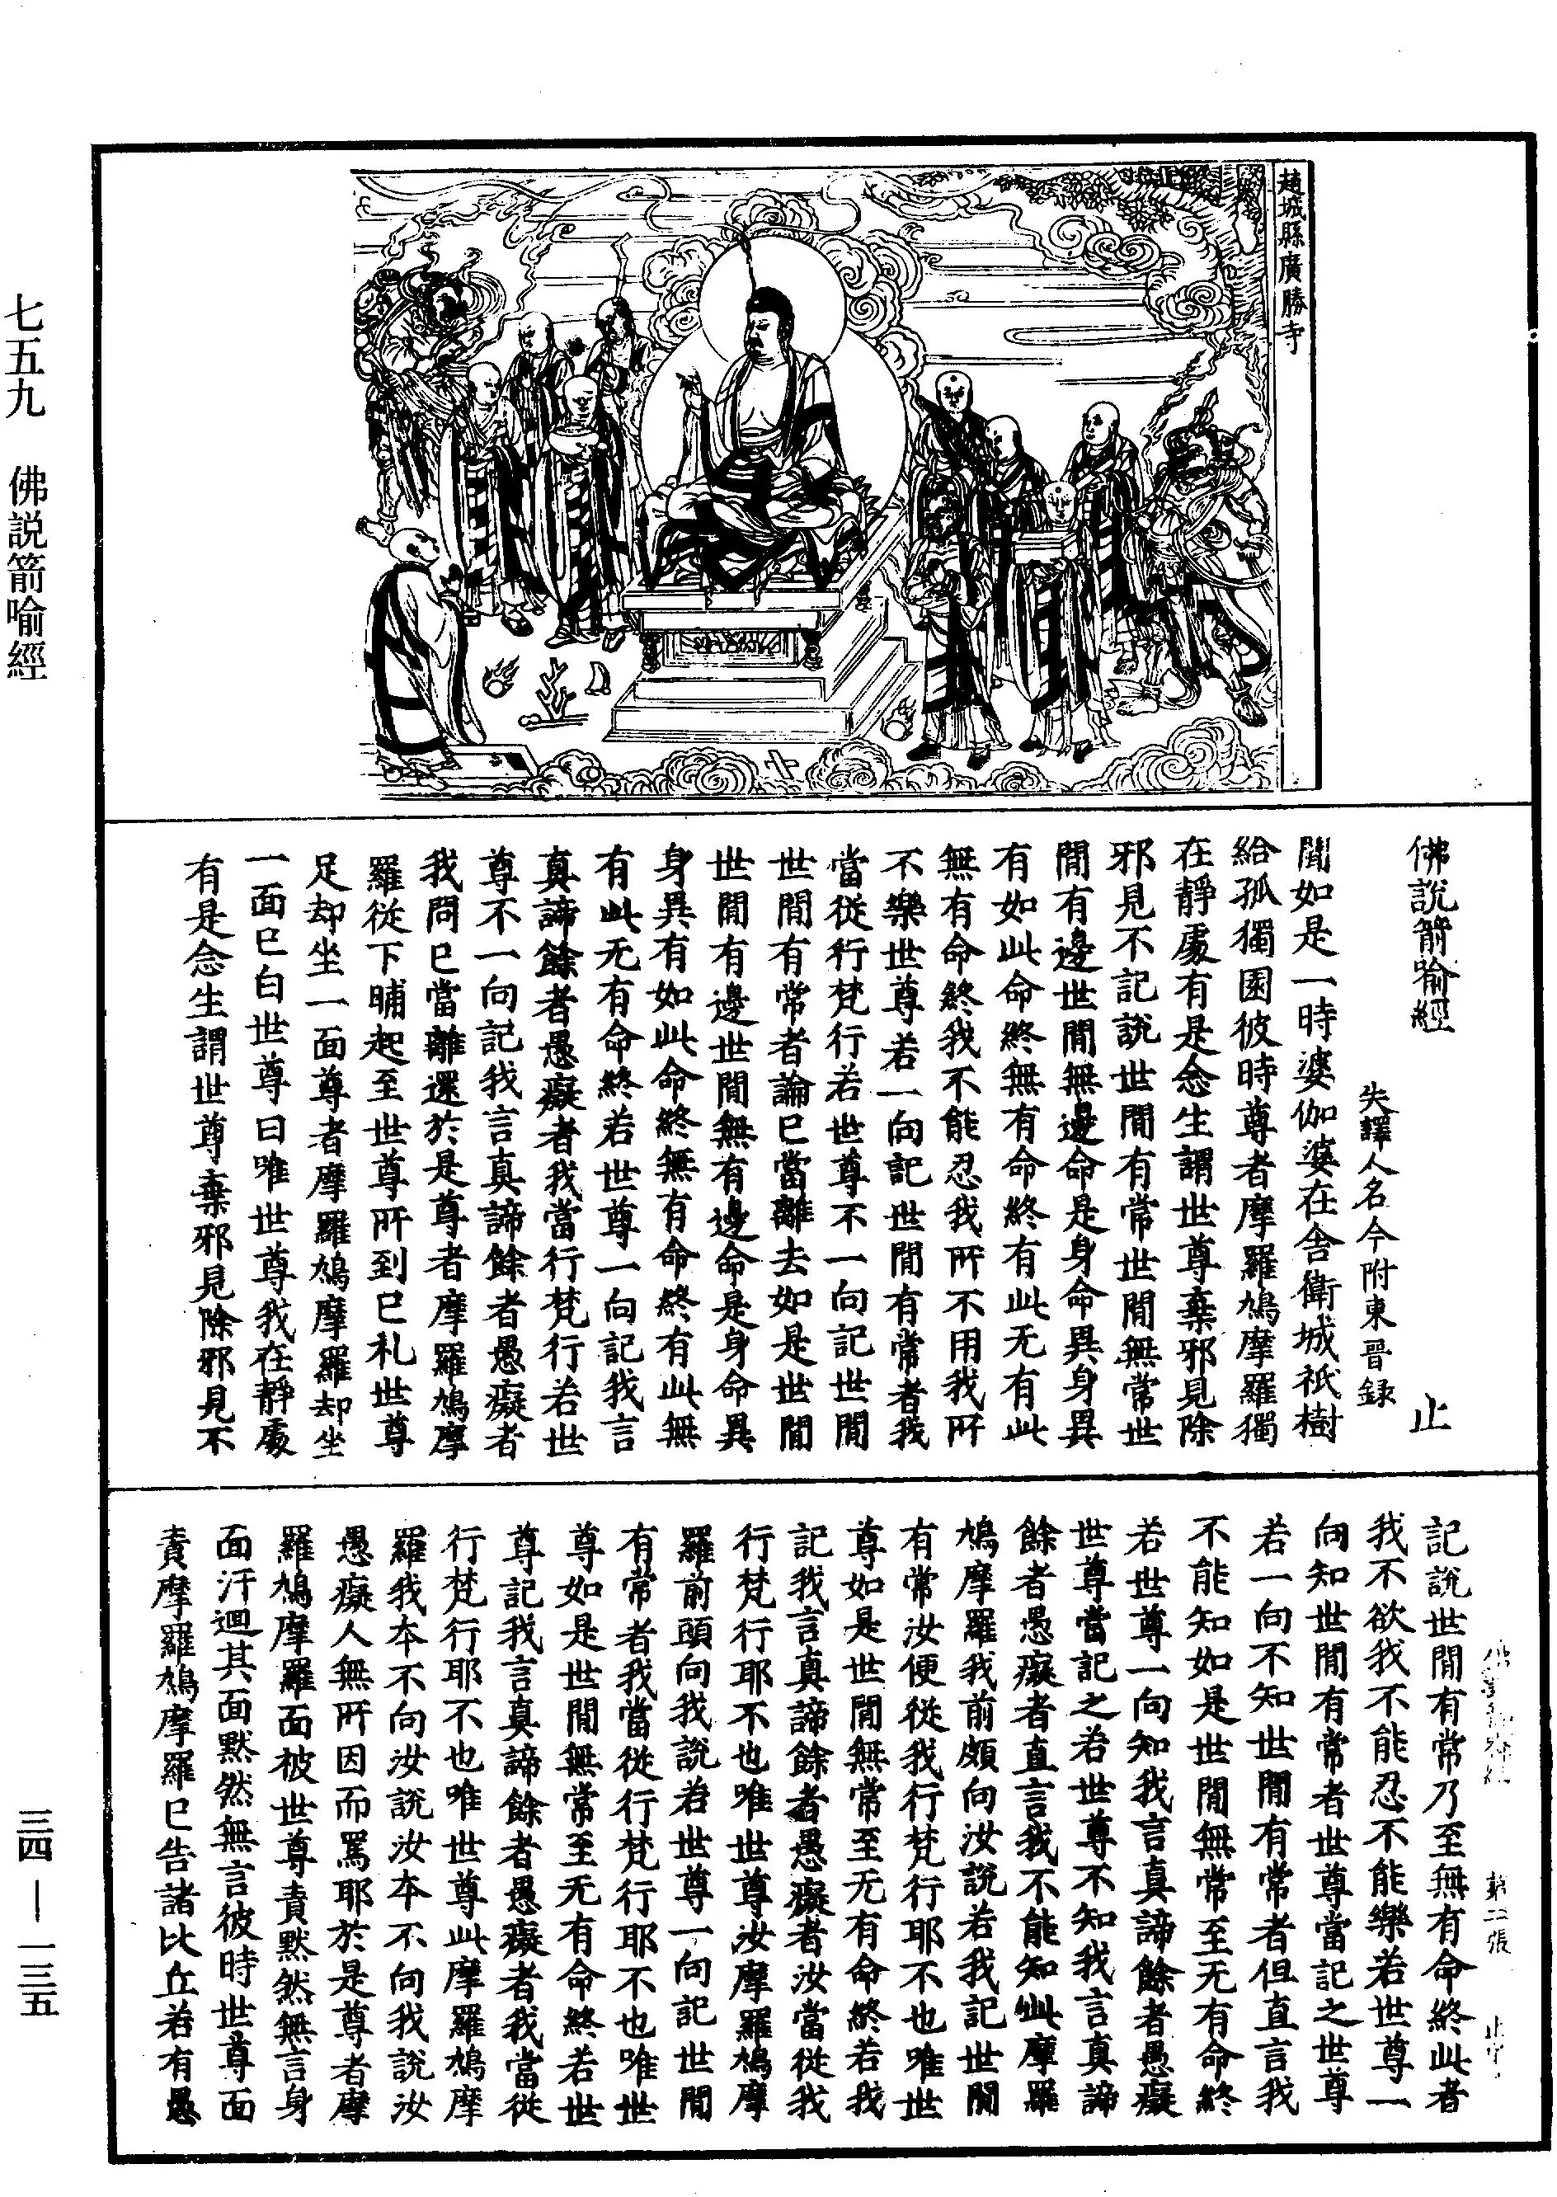 趙城縣廣勝寺
佛說箭喻經 止
失譯人名今附東晉錄
聞如是一時婆伽婆在舍衛城祇樹
給孤獨園彼時尊者摩羅鳩摩羅獨
在靜處有是念生謂世尊棄邪見除
邪見不記說世間有常世間無常世
間有邊世間無邊命是身命異身異
有如此命終無有命終有此无有此
無有命終我不能忍我所不用我所
不樂世尊若一向記世間有常者我
當從行梵行若世尊不一向記世間
世間有常者論已當離去如是世間
世間有邊世間無有邊命是身命異
身異有如此命終無有命終有此無
有此无有命終若世尊一向記我言
真諦餘者愚癡者我當行梵行若世
尊不一向記我言真諦餘者愚癡者
我問已當離還於是尊者摩羅鳩摩
羅從下晡起至世尊所到已礼世尊
足却坐一面尊者摩羅鳩摩羅却坐
一面已白世尊曰唯世尊我在靜處
有是念生謂世尊棄邪見除邪見不
第二張
記說世間有常乃至無有命終此者
我不欲我不能忍不能樂若世尊一
向知世間有常者世尊當記之世尊
若一向不知世間有常者但直言我
不能知如是世間無常至无有命終
若世尊一向知我言真諦餘者愚癡
世尊當記之若世尊不知我言真諦
餘者愚癡者直言我不能知此摩羅
鳩摩羅我前頗向汝說若我記世間
有常汝便從我行梵行耶不也唯世
尊如是世間無常至无有命終若我
記我言真諦餘者愚癡者汝當從我
行梵行耶不也唯世尊汝摩羅鳩摩
羅前頭向我說若世尊一向記世間
有常者我當從行梵行耶不也唯世
尊如是世間無常至无有命終若世
尊記我言真諦餘者愚癡者我當從
行梵行耶不也唯世尊此摩羅鳩摩
羅我本不向汝說汝本不向我說汝
愚癡人無所因而罵耶於是尊者摩
羅鳩摩羅面被世尊責默然無言身
面汗迴其面默然無言彼時世尊面
責摩羅鳩摩羅已告諸比丘若有愚
七五九 佛説箭喻經
三四—一三五